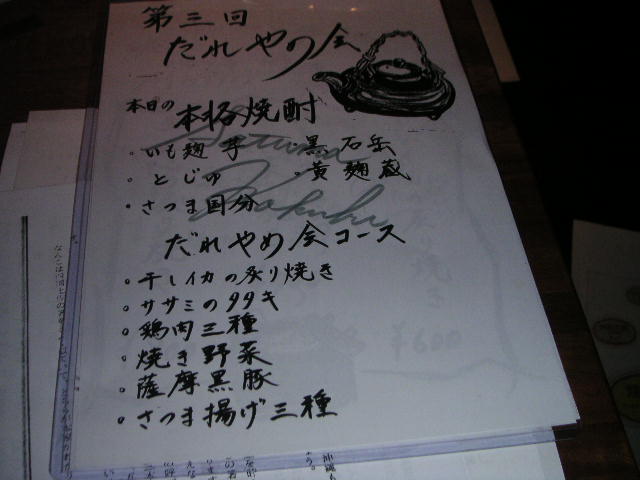 第三回
だれやめ会
本日の本格焼酎
・いも麹芋 ・黒石岳
・とじゅ ・黄麹蔵
・さつま国分
だれやめ会コース
・干しイカの炙り焼き
・ササミのタタキ
・鶏肉三種
・焼き野菜
・薩摩黒豚
・さつま揚げ三種
¥600